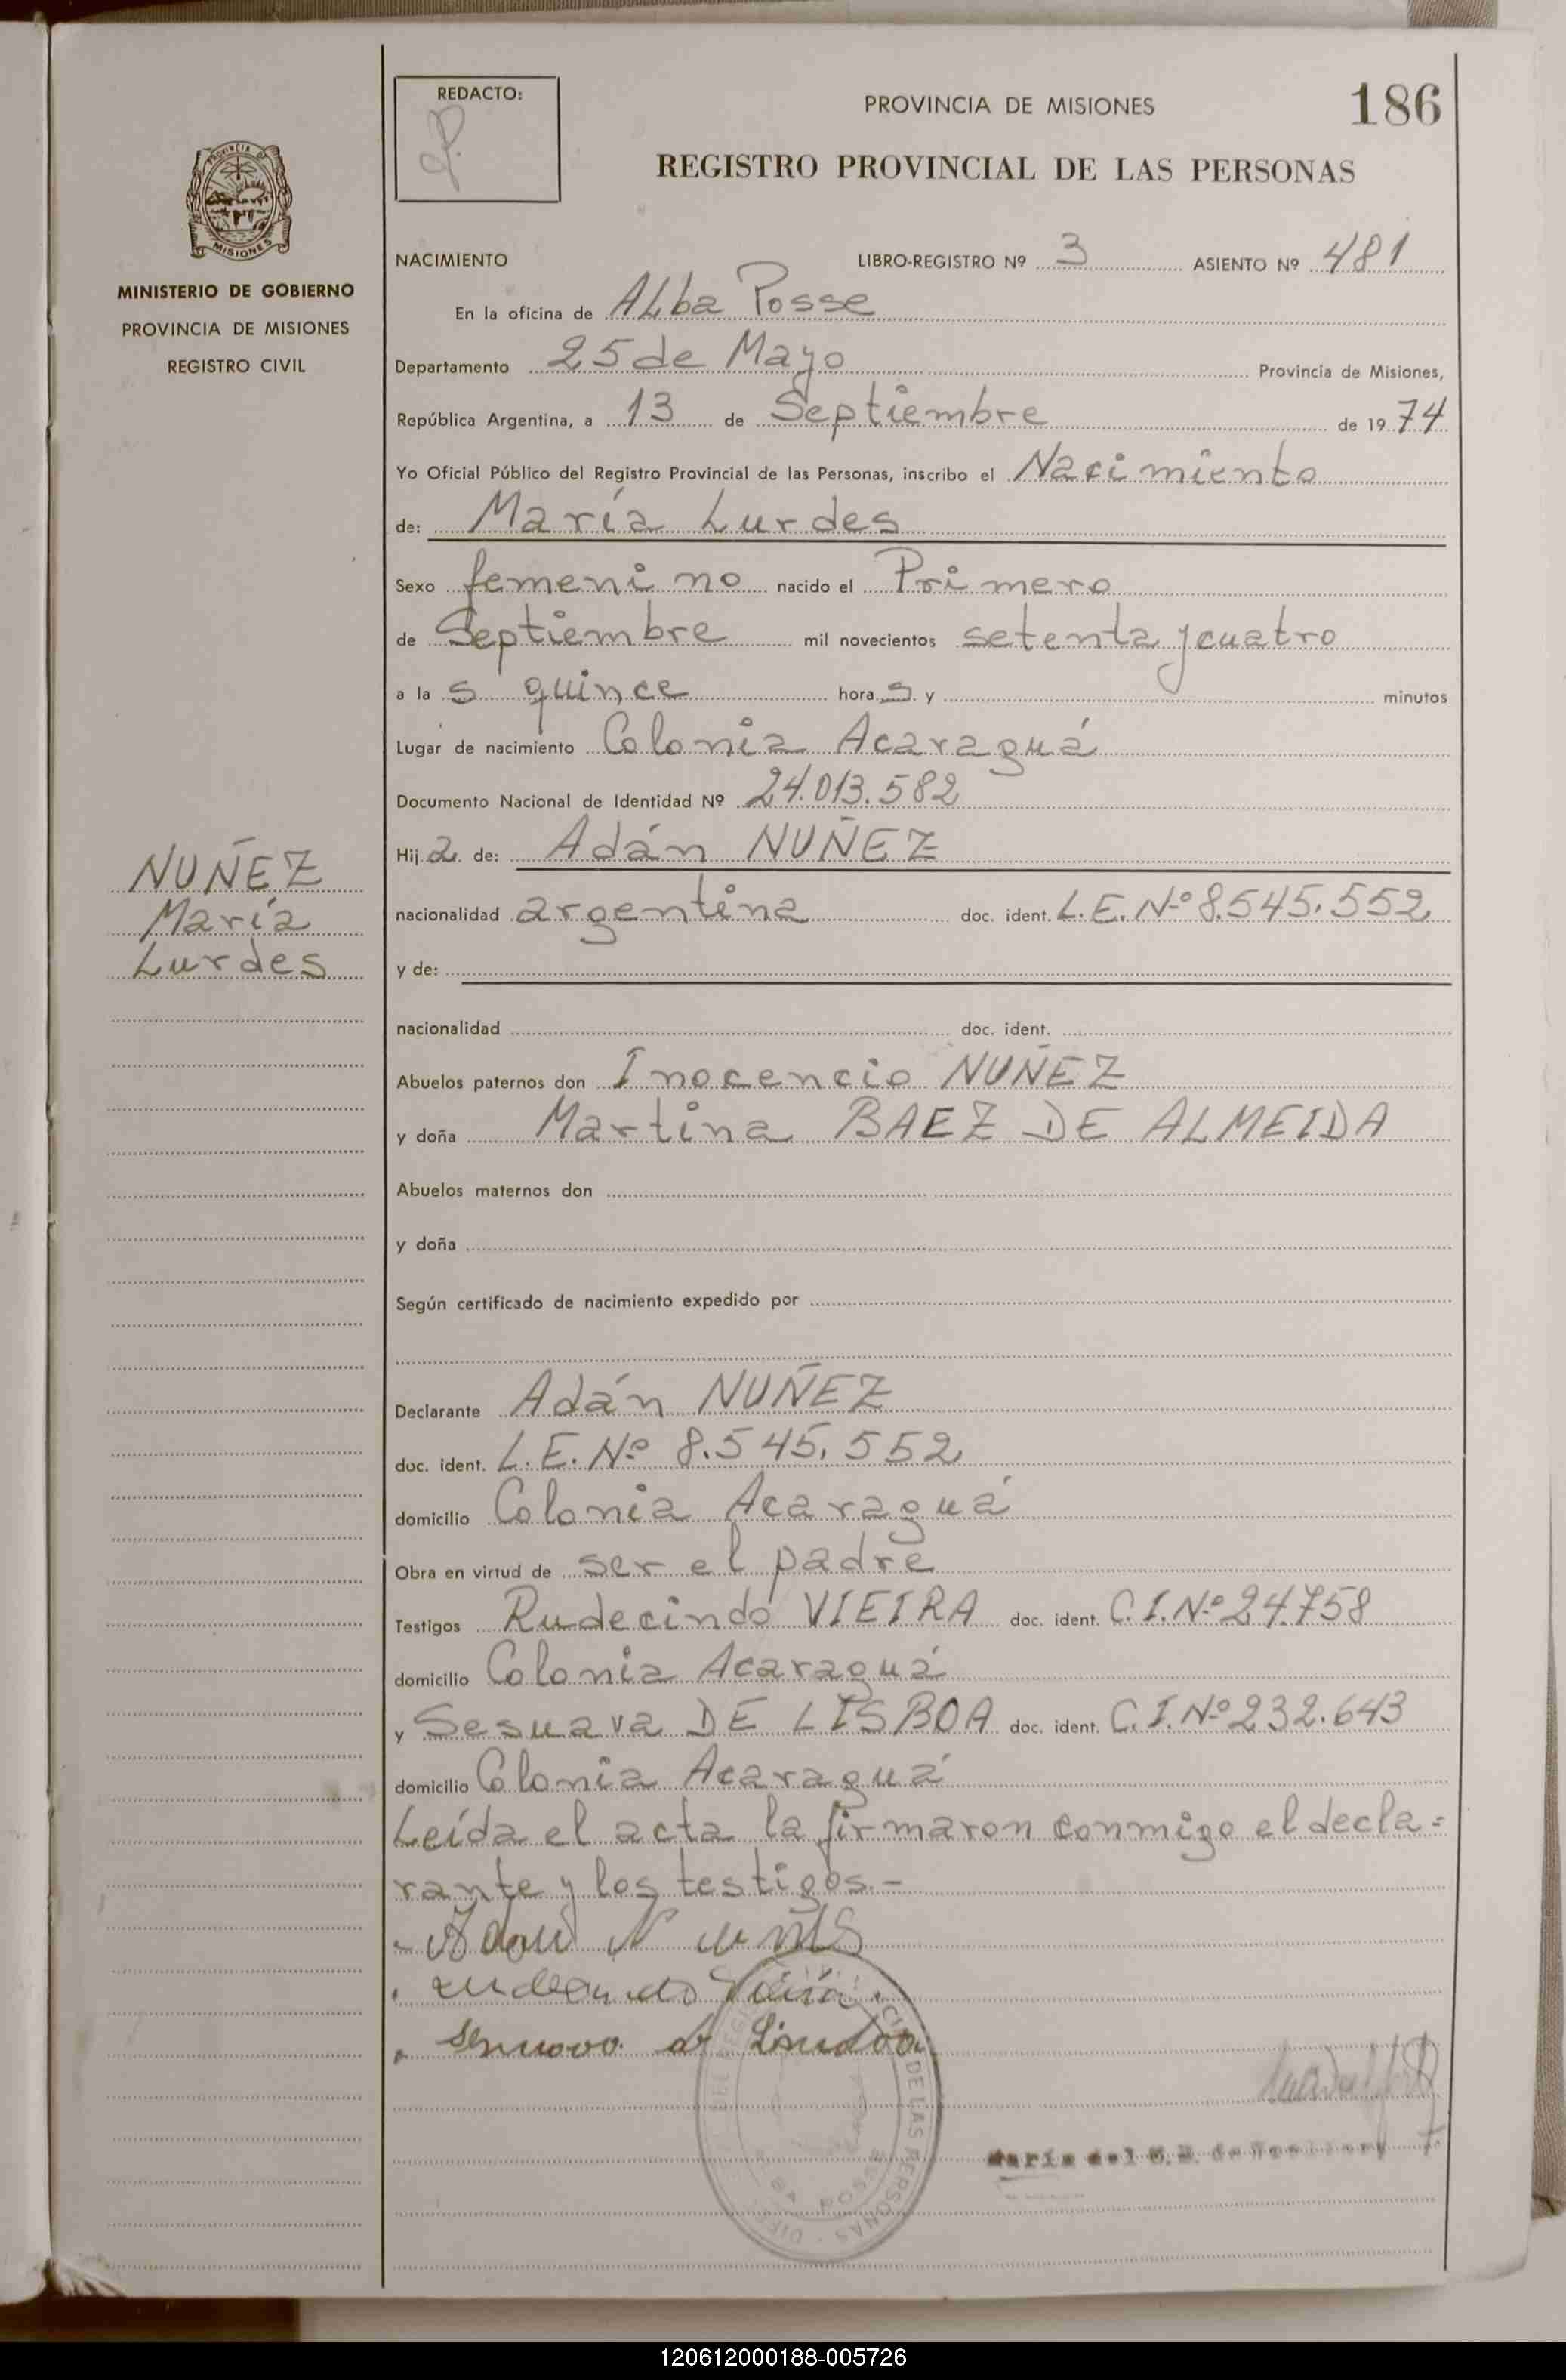 REDACTO:
PROVINCIA DE MISIONES
186
REGISTRO PROVINCIAL DE LAS PERSONAS
PROVINCIA DE
MISIONES
MINISTERIO DE GOBIERNO
PROVINCIA DE MISIONES
REGISTRO CIVIL
NACIMIENTO LIBRO-REGISTRO Nº 3 ASIENTO Nº 481
En la oficina de ALba Posse
Departamento 25 de Mayo Provincia de Misiones,
República Argentina, a 13 de Septiembre de 1974
Yo Oficial Público del Registro Provincial de las Personas, inscribo el Nacimiento
de: María Lurdes
Sexo femenino nacido el Primero
de Septiembre mil novecientos setenta y cuatro
a las quince horas y minutos
Lugar de nacimiento Colonia Acaraguá
Documento Nacional de Identidad Nº 24.013.582
Hija de: Adán NUÑEZ
NUÑEZ
María
Lurdes
nacionalidad argentina doc. ident. L.E.Nº 8.545.552
y de:
nacionalidad doc. ident.
Abuelos paternos don Inocencio NUÑEZ
y doña Martina BAEZ DE ALMEIDA
Abuelos maternos don
y doña
Según certificado de nacimiento expedido por
Declarante Adán NUÑEZ
doc. ident. L.E.Nº 8.545.552
domicilio Colonia Acaraguá
Obra en virtud de ser el padre
Testigos Rudecindo VIEIRA doc. ident. C.I.Nº 24.758
domicilio Colonia Acaraguá
y Sesuava DE LISBOA doc. ident. C.I.Nº 232.643
domicilio Colonia Acaraguá
Leída el acta la firmaron conmigo el decla=
rante y los testigos.-
DE LAS PERSONAS
POSSE
María del
120612000188-005726